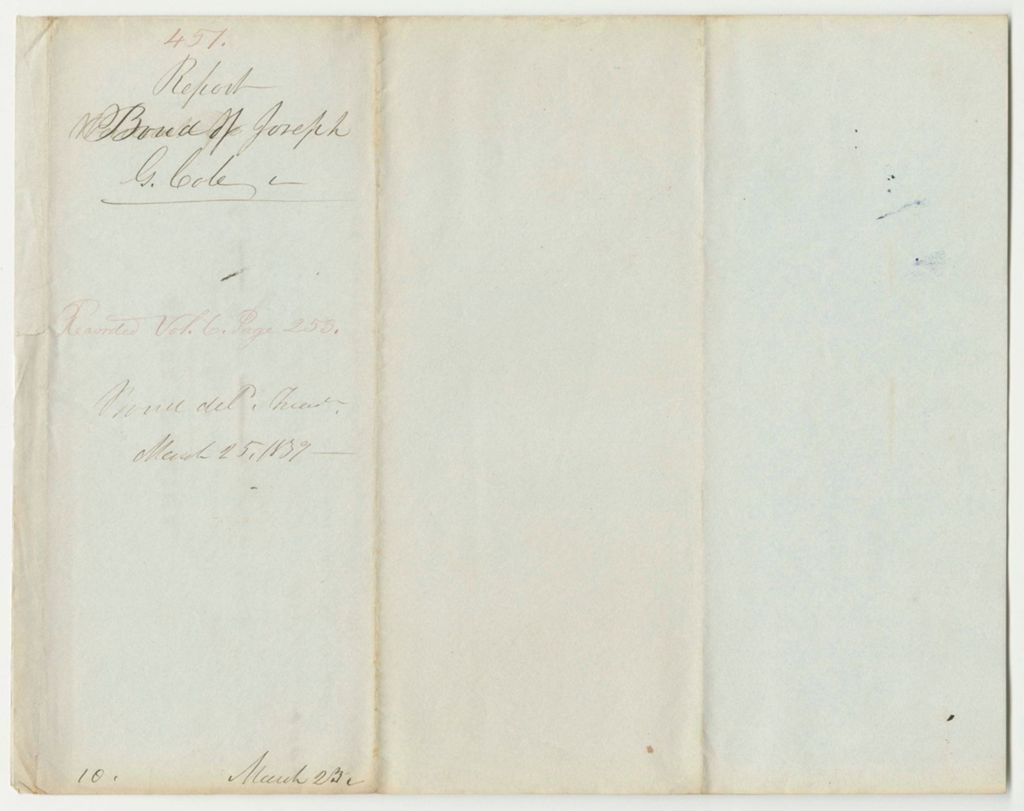 451.
Report
Bond of Joseph
G. Cole
Recorded Vol. 6. Page 253.
Bond del.
March 25, 1839
10. March 23.